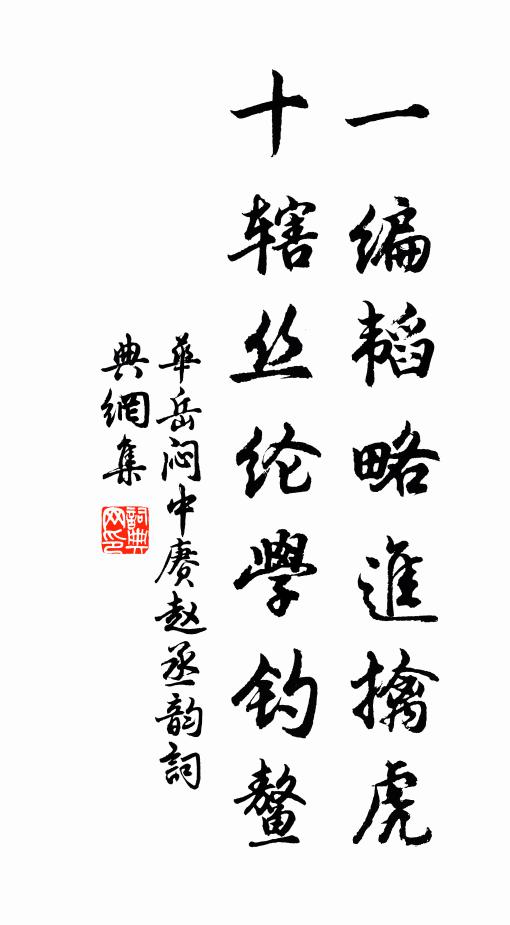 一编韬略進擒虎
十辖丝纶學钓鳌
華岳闷中赓赵丞韵詞
典網集
詞典网印